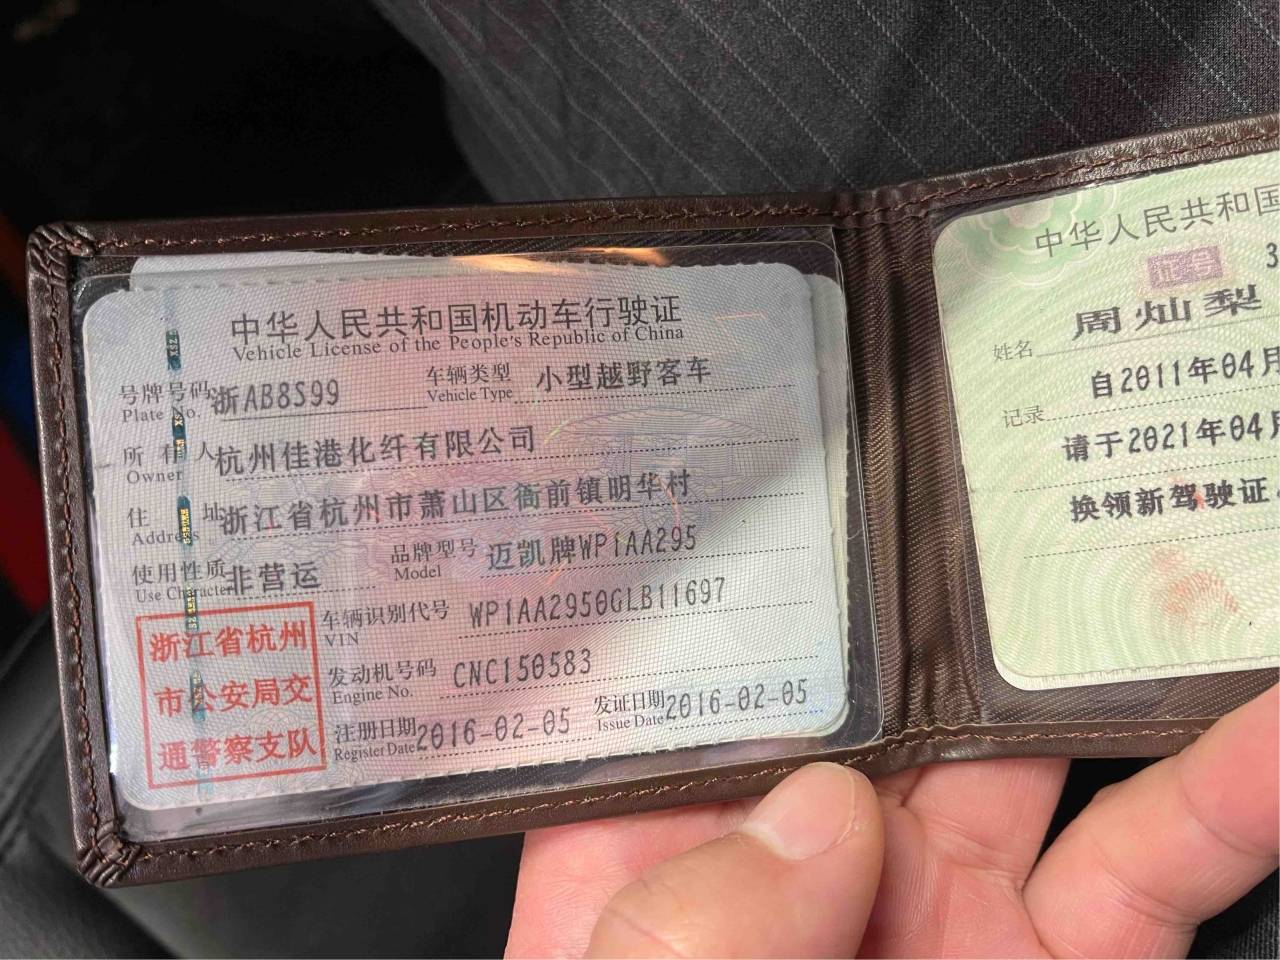 中华人民共和国机动车行驶证
Vehicle License of the People's Republic of China
号牌号码 浙AB8S99 车辆类型 小型越野客车
Plate No. Vehicle Type
所有人 杭州佳港化纤有限公司
Owner
住址 浙江省杭州市萧山区衙前镇明华村
Address
使用性质 非营运 品牌型号 迈凯牌WP1AA295
Use Character Model
车辆识别代号 WP1AA2950GLB11697
VIN
发动机号码 CNC150583
Engine No.
注册日期 2016-02-05 发证日期 2016-02-05
Register Date Issue Date
浙江省杭州
市公安局交
通警察支队
中华人民共和国
证号 3
姓名 周灿梨
自2011年04月
记录
请于2021年04月
换领新驾驶证